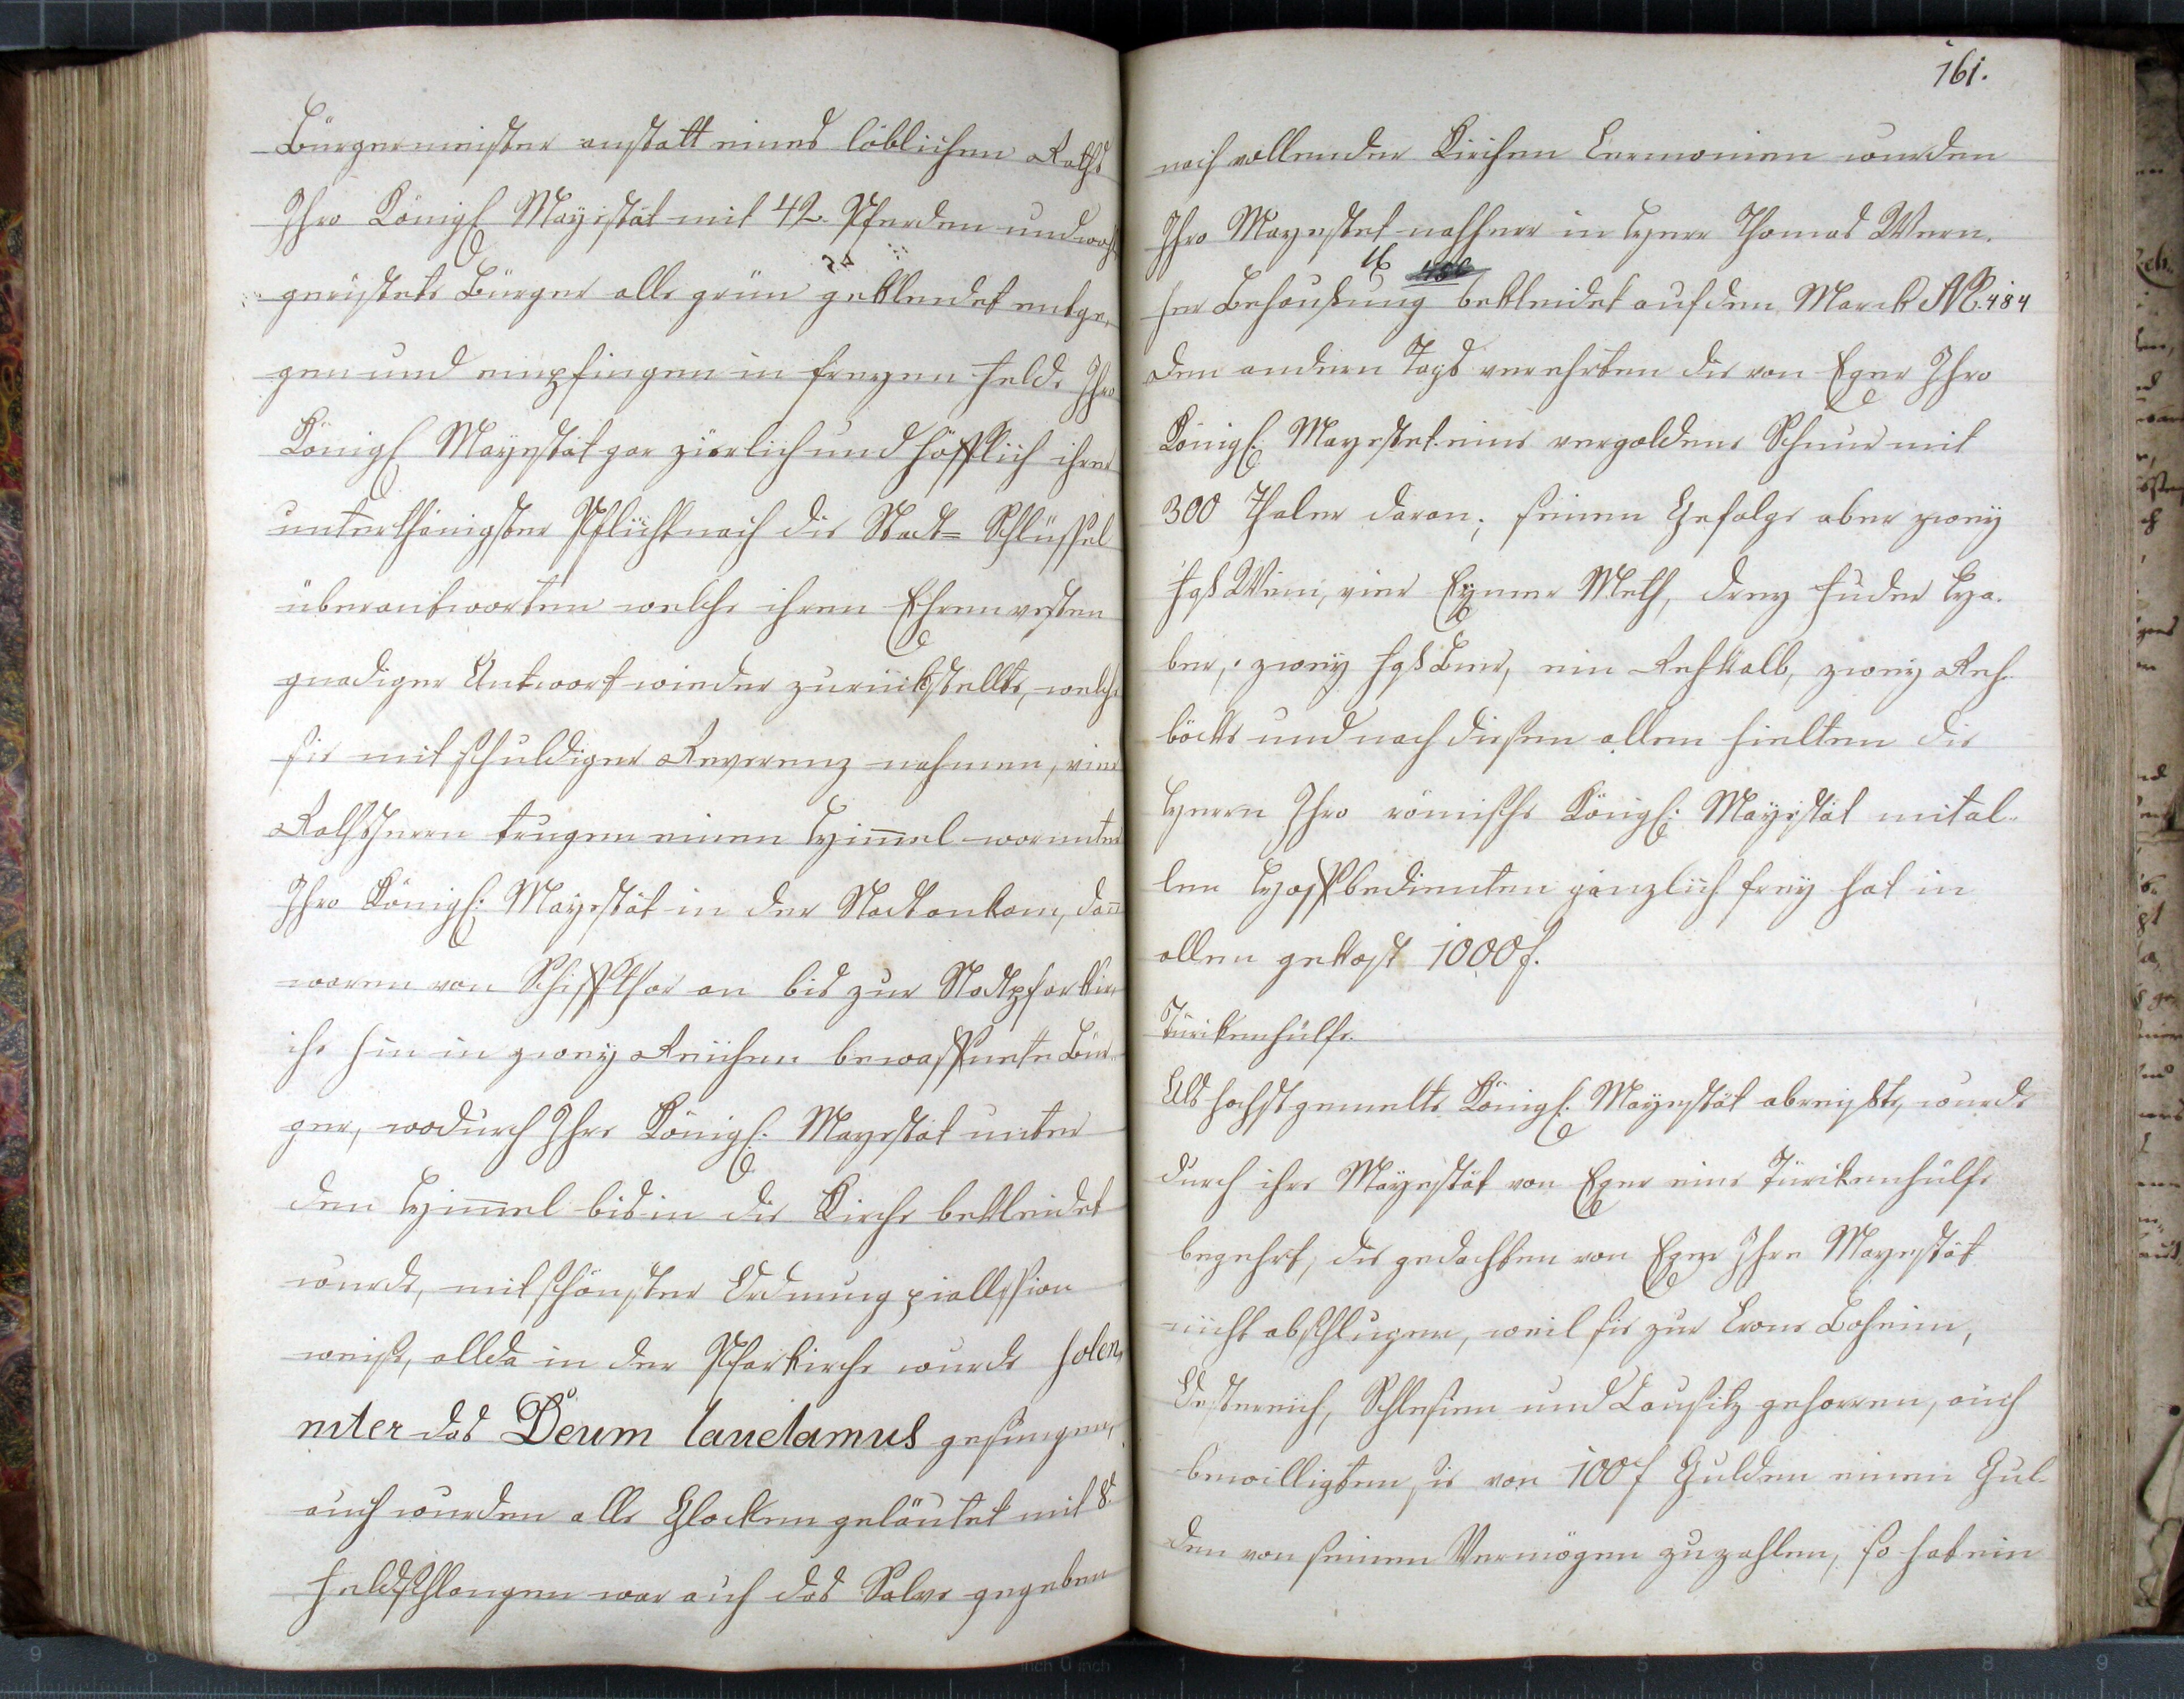 Bürgermeister anstatt eines löblichen Raths
Ihro Königl Mayestät mit 42. Pferden und wohl
gerüstete Bürger alle grün gekleudet entge,
gen und empfingen in freyen Felde Ihro
Königl Mayestät gar zierlich und höfflich ihrer
unterthänigster Pflicht nach die Stadt= Schlüssel
überantworten welche ihren Ehrenvesten
gnädiger Antwort wieder zurückstellte, welche
sie mit schuldiger Reverenz nahmen, vier
Rathsherrn trugen einen Him̅el worunter
Ihro Königl: Mayestät in der Stadt ankam, dan̅
waren von Schiffthor an bis zur Stadtpfarkir,
che hin in zwey Reichen bewaffnete Bür,
ger, wodurch Ihre Königl. Mayestat unter
den Him̅el bis in die Kirche bekleidet
wurde, mit schönster Ordnung
weiße, allda in der Pfarkirche wurde solen,
niter das Deum laudamus gesungen,
auch wurden alle Glocken geläutet mit 8.
Feldschlangen war auch das Salve gegeben
161.
nach vollender Kirchen Ceremonien wurden
Ihro Mayestet nahher in Herr Thomas Wern,
her Behaußung bekleidet auf dem Marck № 484
den andern Tags verehrten die von Eger Ihro
Königl: Mayestet eine vergoldene Schnur mit
300 Thaler daran; seinen Gefolge aber zwey
Faß Wein, vier Eymer Meth, drey Fuder Ha,
ber, zwey Faß Bier, ein Rehkalb, zwey Reh,
böcke und nach diesen allen hielten die
Herrn Ihro römische Königl: Mayestät mit al,
len Hoffbedienten gänzlich frey hat in
allen gekost 1000 f.
Türckenhülfe.
Als hochstgemelte Königl. Mayestät abreyßte, wurde
durch ihre Mayestät von Eger eine Türckenhülfe
begehrt, die gedachten von Eger Ihre Mayestät
nicht abschlugen, weil sie zur Crone Boheim,
Oesterreich, Schlesien und Lausitz gehorren, auch
bewilligten sie von 100 f Gulden einen Gul,
den von seinen Vermögen zu zahlen, so hat ein